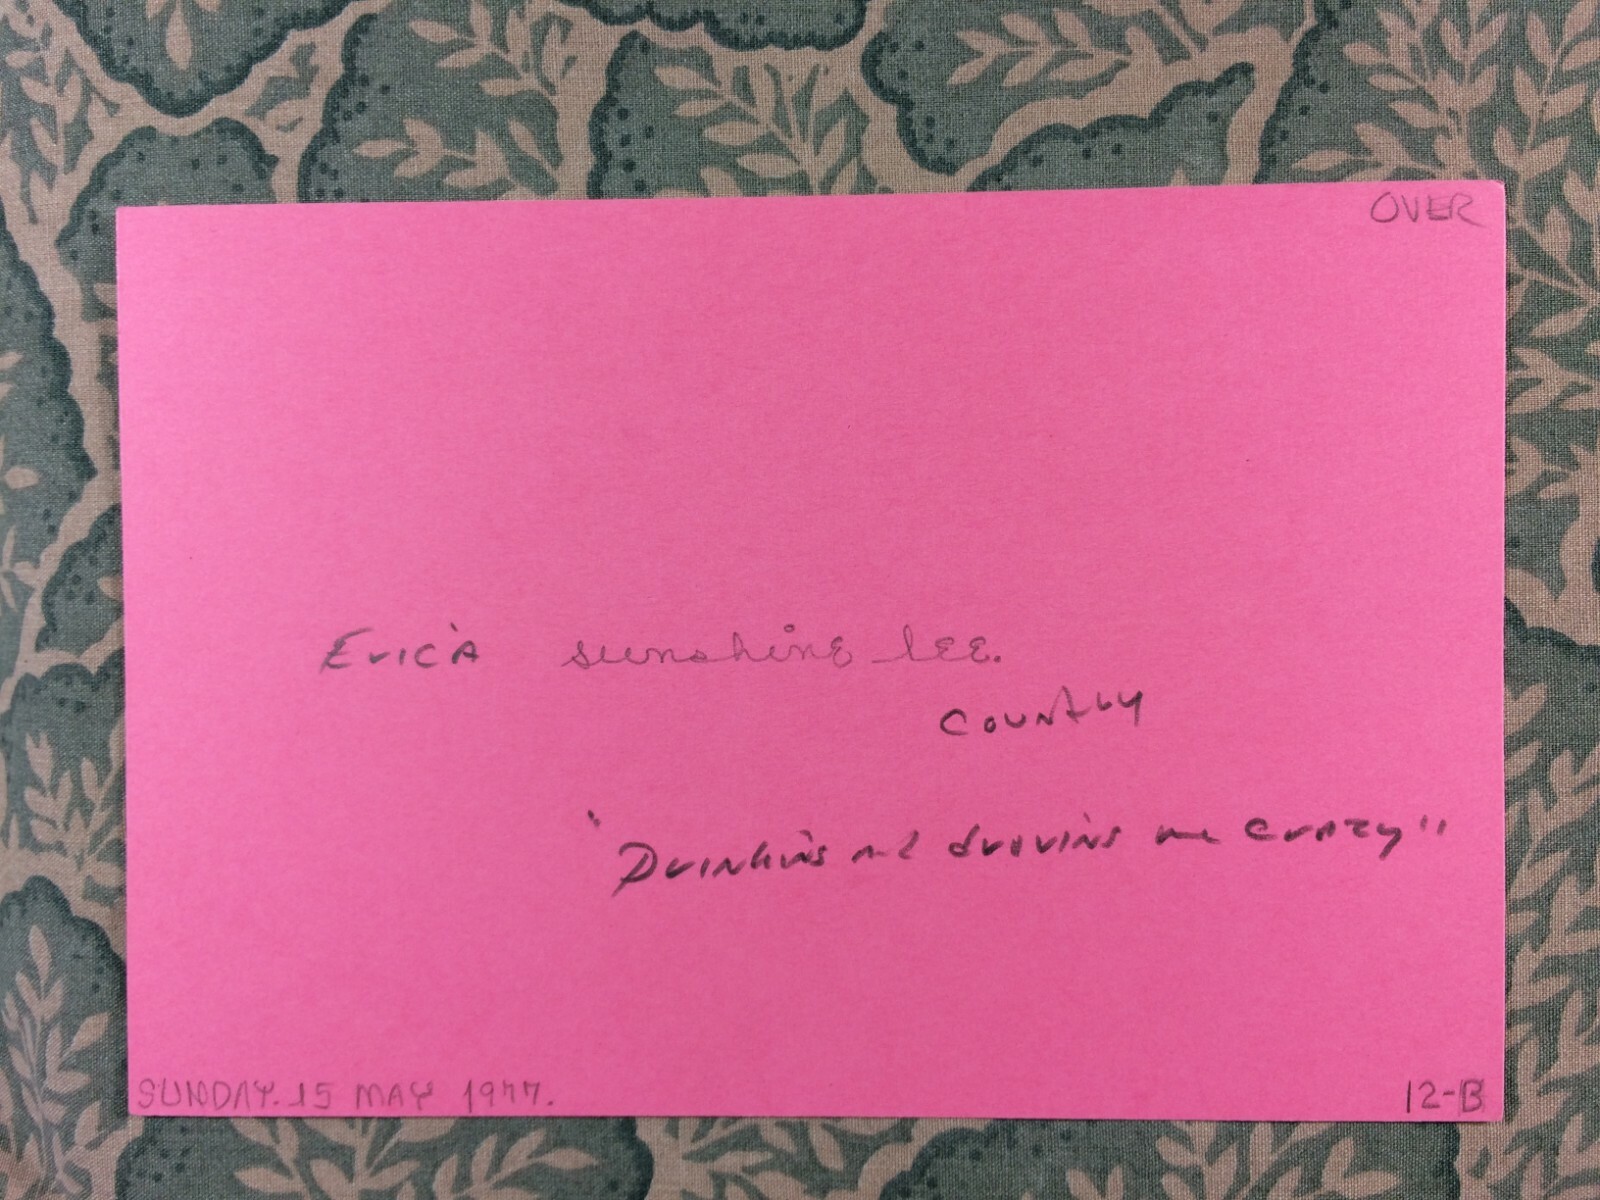 OVER
Erica sunshine lee.
country
"Drinking and driving me crazy"
SUNDAY. 15 MAY 1977.
12-B